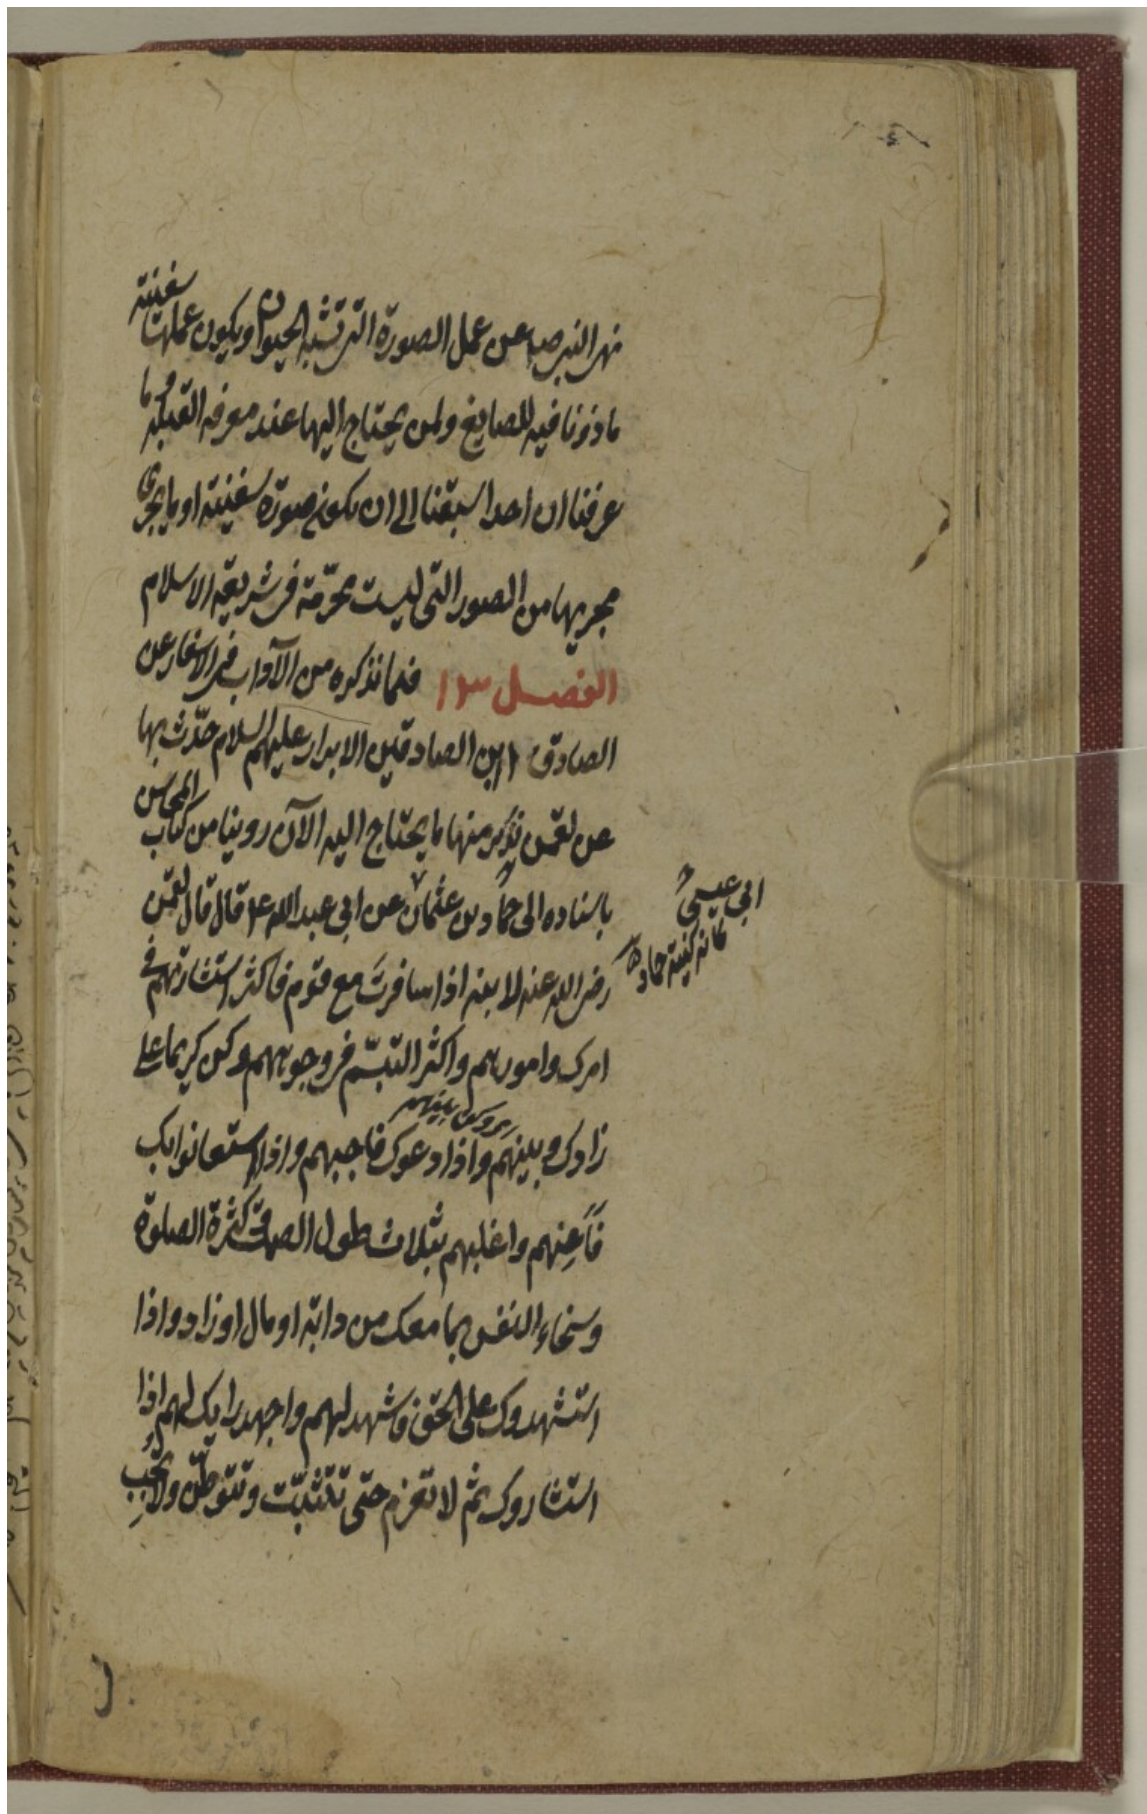 نهى النبى ص عن عمل الصورة التى تشبه الحيوان او يكون عملها سفينته
ماذونا فيه للصايغ ولمن يحتاج اليها عند معرفه القبله وما
عرفنا ان احدا سبقنا الى ان يكون صورة سفينته او ما يجرى
مجريها من الصور التى ليست محرّمة فى شريعة الاسلام
الفصل ١٣ فيما نذكره من الآداب فى الاسفار عن
الصادق ابن الصادقين الابرار عليهم السلام حدّث بها
عن لقمن نذكر منها ما يحتاج اليه الآن روينا من كتاب المحاسن
باسناده الى حمّاد بن عثمان عن ابى عبد الله ع قال قال لقمن
رضى الله عنه لابنه اذا سافرتَ مع قوم فاكثر استشارتهم فى
امرك وامورهم واكثر التبسّم فى وجوههم وكن كريما على
زادك وبينهم واذا دعوك فاجبهم واذا استعانوا بك
فَاَعِنهم واغلبهم بثلاث طول الصمت وكثرة الصلوة
وسخاء النفس بما معك من دابّة او مال او زاد واذا
استشهدوك على الحق فاشهد لهم واجهد رايك لهم اذا
استشاروك ثم لا تعزم حتى تتثبّت وتتوطّن ولا تُجِب
ابى عيسى
كانه كنية حماد